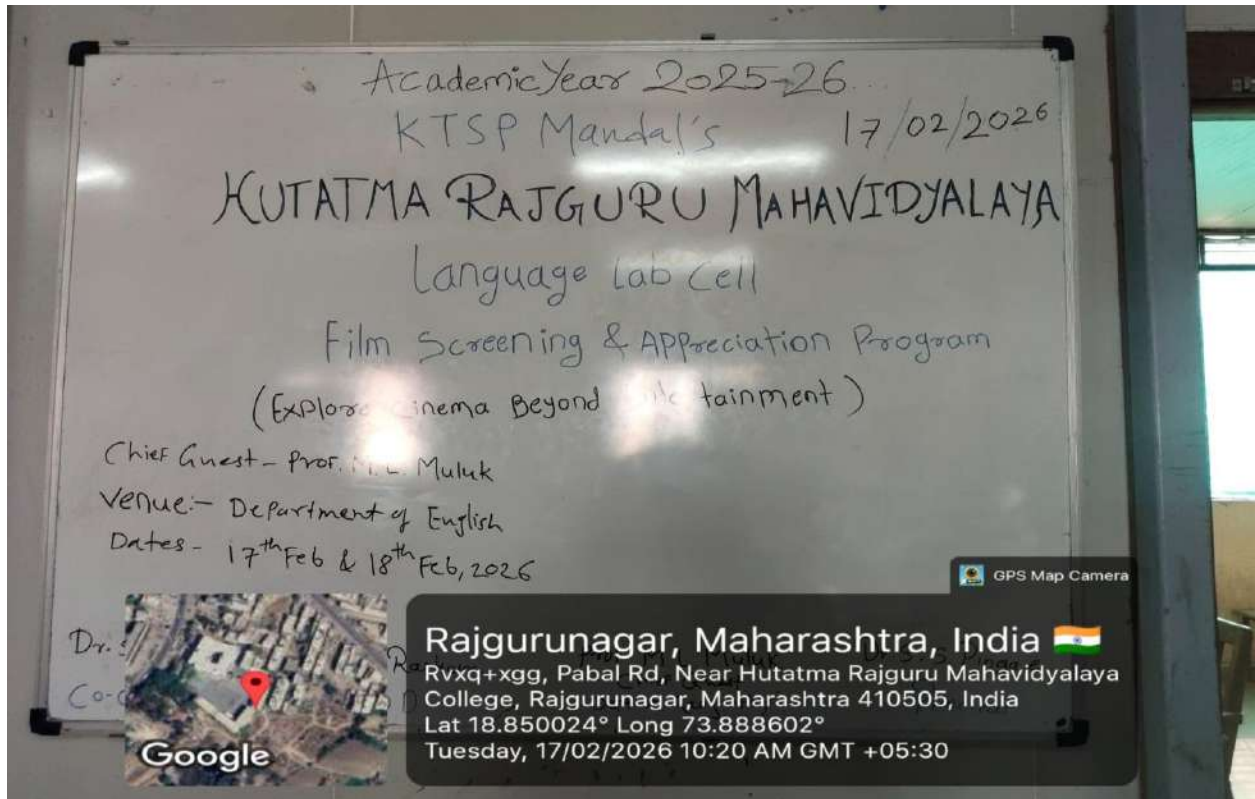 Academic Year 2025-26...
KTSP Mandal's 17/02/2026
HUTATMA RAJGURU MAHAVIDYALAYA
Language Lab Cell
Film Screening & Appreciation Program
(Explore Cinema Beyond tainment)
Chief Guest - Prof. M. L. Muluk
Venue:- Department of English
Dates - 17th Feb & 18th Feb, 2026
GPS Map Camera
Dr. S
Co-
M. L. Muluk
Rajgurunagar, Maharashtra, India
Rvxq+xgg, Pabal Rd, Near Hutatma Rajguru Mahavidyalaya
College, Rajgurunagar, Maharashtra 410505, India
Lat 18.850024° Long 73.888602°
Tuesday, 17/02/2026 10:20 AM GMT +05:30
Google